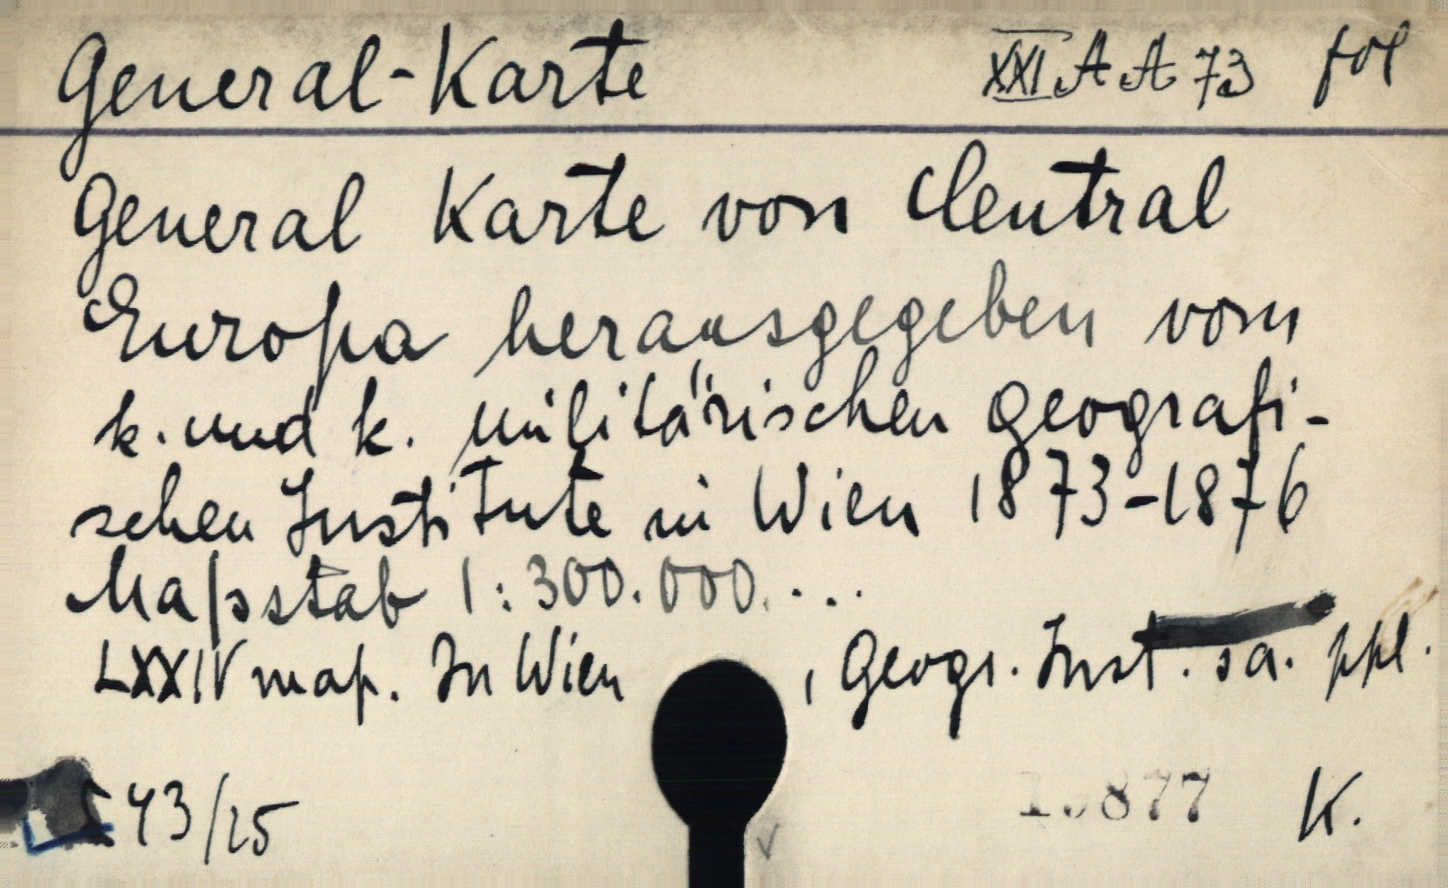 General-Karte XXI A A 73 fol
General Karte von Central
Europa herausgegeben vom
k. und k. militärischen geografi-
schen Institute in Wien 1873-1876
Maßstab 1:300.000. ...
LXXIV map. In Wien , Geogr. Inst. sa. ppl.
43/25 K.